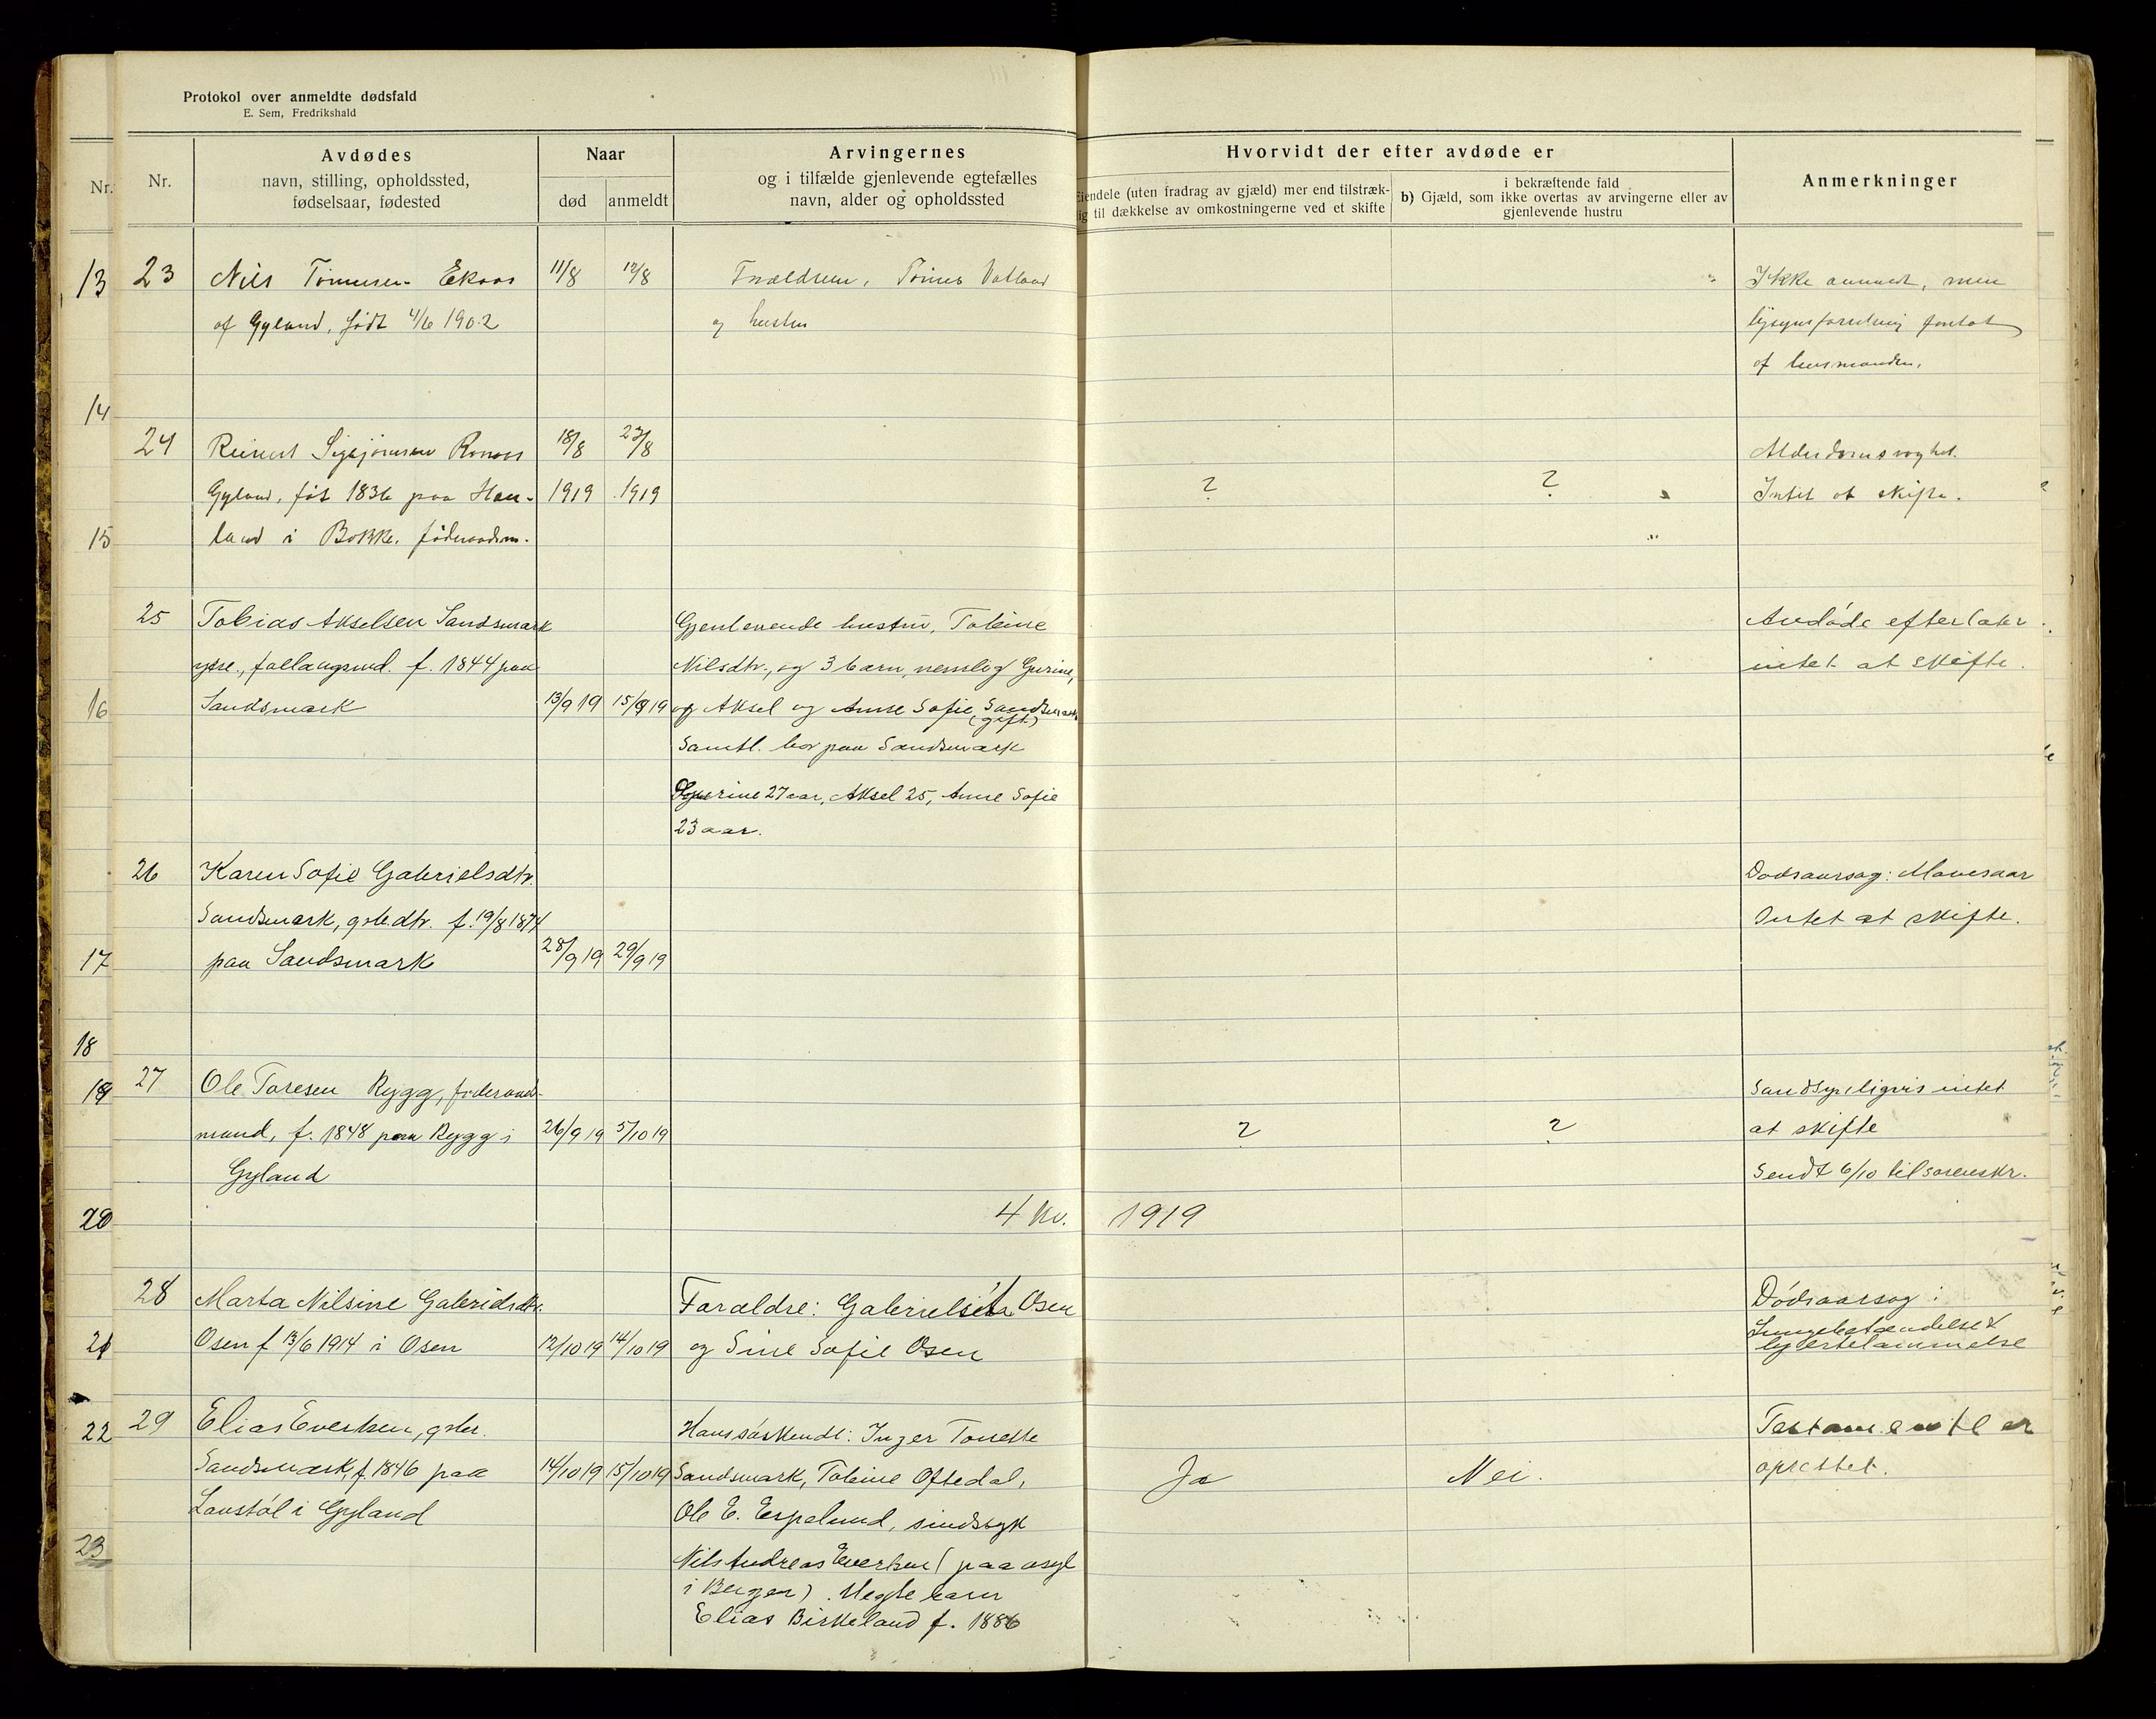 Protokol over anmeldte dødsfald
E. Sem, Fredrikshald
Nr.
Nr.
Avdødes
navn, stilling, opholdssted,
fødselsaar, fødested
Naar
død
anmeldt
Arvingernes
og i tilfælde gjenlevende egtefælles
navn, alder og opholdssted
Hvorvidt der efter avdøde er
Eiendele (uten fradrag av gjæld) mer end tilstræk-
ig til dækkelse av omkostningerne ved et skifte
i bekræftende fald
b) Gjæld, som ikke overtas av arvingerne eller av
gjenlevende hustru
Anmerkninger
13
14
15
16
17
18
19
20
21
22
23
23
Nils Ekaas
af Gyland, født 4/6 1902
11/8
12/8
Forældrene, Tønnes Vatland
og hustru
Ikke anmeldt, men
af lensmanden.
24
Reinert Ramaas
Gyland, føt 1836 paa Hau-
land i Bakke. føderaadsm.
18/8
1919
23/8
1919
?
?
Alderdomssvaghet.
Intet at skifte.
25
Tobias Akselsen Sandsmark
ysre., follaugsmd. f. 1844 paa
Sandsmark
13/9 19
15/9 19
Gjenlevende hustru, Tobine
Nilsdtr., og 3 barn, nemslig Gurine,
og Aksel og Anne Sofie Sandsmark
(gift)
Samtl. bor paa Sandsmark
Gurine 27 aar, Aksel 25, Anne Sofie
23 aar.
Avdøde efterlater
intet at skifte.
26
Karen Sofie Gabrielsdtr.
Sandsmark, gbr.dtr. f. 19/8 1874
paa Sandsmark
28/9 19
29/9 19
Dødsaarsag: Mavesaar
Intet at skifte.
27
Ole Toresen Rygg, føderaads-
mand, f. 1848 paa Rygg i
Gyland
26/9 19
5/10 19
?
?
Sandsynligvis intet
at skifte
Sendt 6/10 til sorenskr.
4 kv. 1919
28
Marta Nilsine Gabrielsdtr.
Osen f 13/6 1914 i Osen
12/10 19
14/10 19
Forældre: Gabriel Osen
og Sine Sofie Osen
Dødsaarsag:
Lungebetændelse &
hjertelammelse
29
Elias Evertsen, gbr.
Sandsmark, f. 1846 paa
Laustøl i Gyland
14/10 19
15/10 19
Hans søskende: Inger Tonette
Sandsmark, Tobine Oftedal,
Ole E. Espelund, sindssyk
Nils Andreas Evertsen (paa asyl
i Bergen). Uegte barn
Elias Birkeland f. 1886
Ja
Nei.
Testamente er
oprettet.